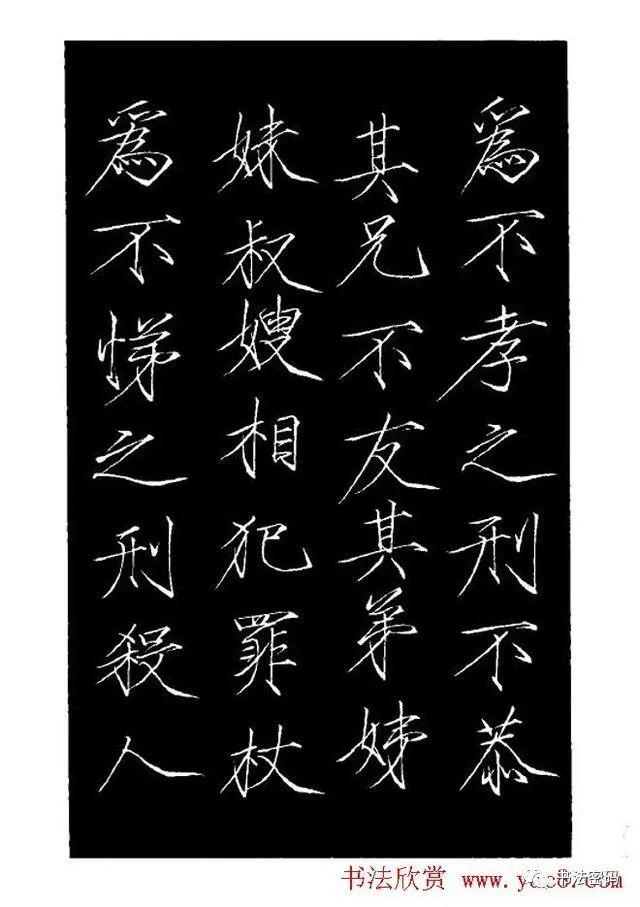 爲不孝之刑不恭
其兄不友其弟姊
妹叔嫂相犯罪杖
爲不悌之刑殺人
书法欣赏 www.yac8.com
书法密码